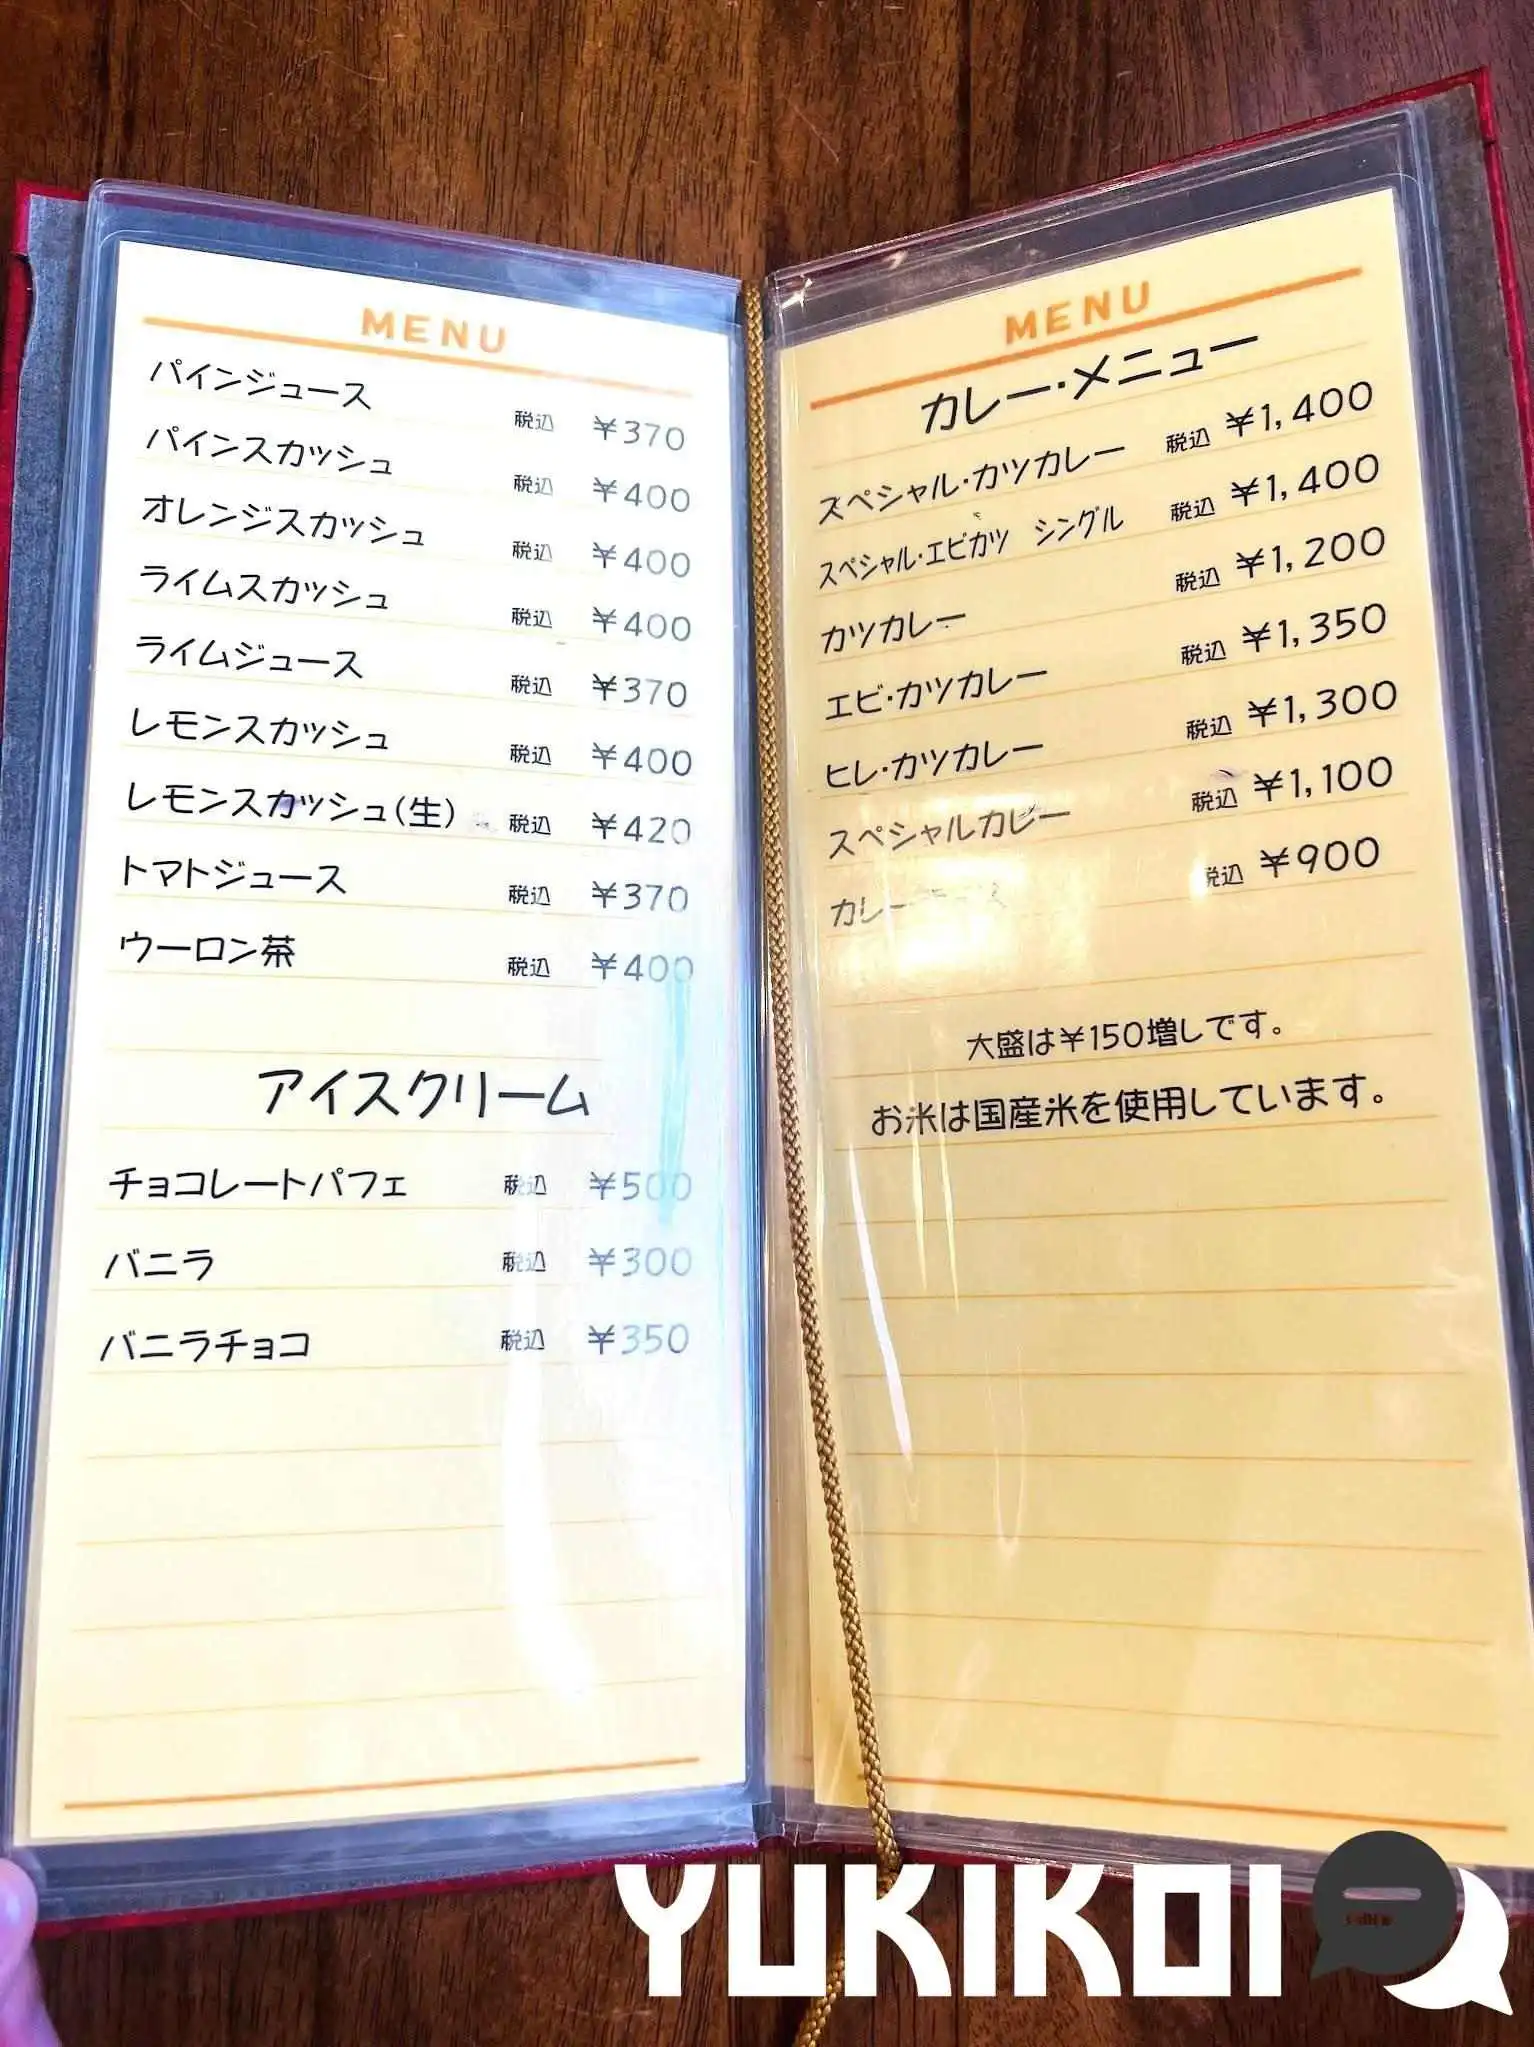 MENU
パインジュース 税込 ¥370
パインスカッシュ 税込 ¥400
オレンジスカッシュ 税込 ¥400
ライムスカッシュ 税込 ¥400
ライムジュース 税込 ¥370
レモンスカッシュ 税込 ¥400
レモンスカッシュ(生) 税込 ¥420
トマトジュース 税込 ¥370
ウーロン茶 税込 ¥400
アイスクリーム
チョコレートパフェ 税込 ¥500
バニラ 税込 ¥300
バニラチョコ 税込 ¥350
MENU
カレー・メニュー
スペシャル・カツカレー 税込 ¥1,400
スペシャル・エビカツ シングル 税込 ¥1,400
カツカレー 税込 ¥1,200
エビ・カツカレー 税込 ¥1,350
ヒレ・カツカレー 税込 ¥1,300
スペシャルカレー 税込 ¥1,100
税込 ¥900
大盛は¥150増しです。
お米は国産米を使用しています。
YUKIKOI